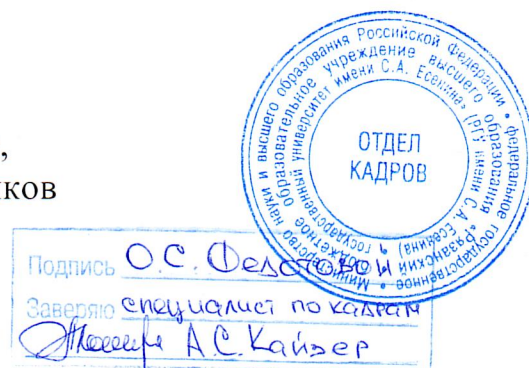 ,
ков
Министерство науки и высшего образования Российской Федерации • федеральное государственное
бюджетное образовательное учреждение высшего образования «Рязанский
государственный университет имени С.А. Есенина» (РГУ имени С.А. Есенина)
ОТДЕЛ
КАДРОВ
Подпись О.С. Федотовой
Заверяю специалист по кадрам
А.С. Кайзер